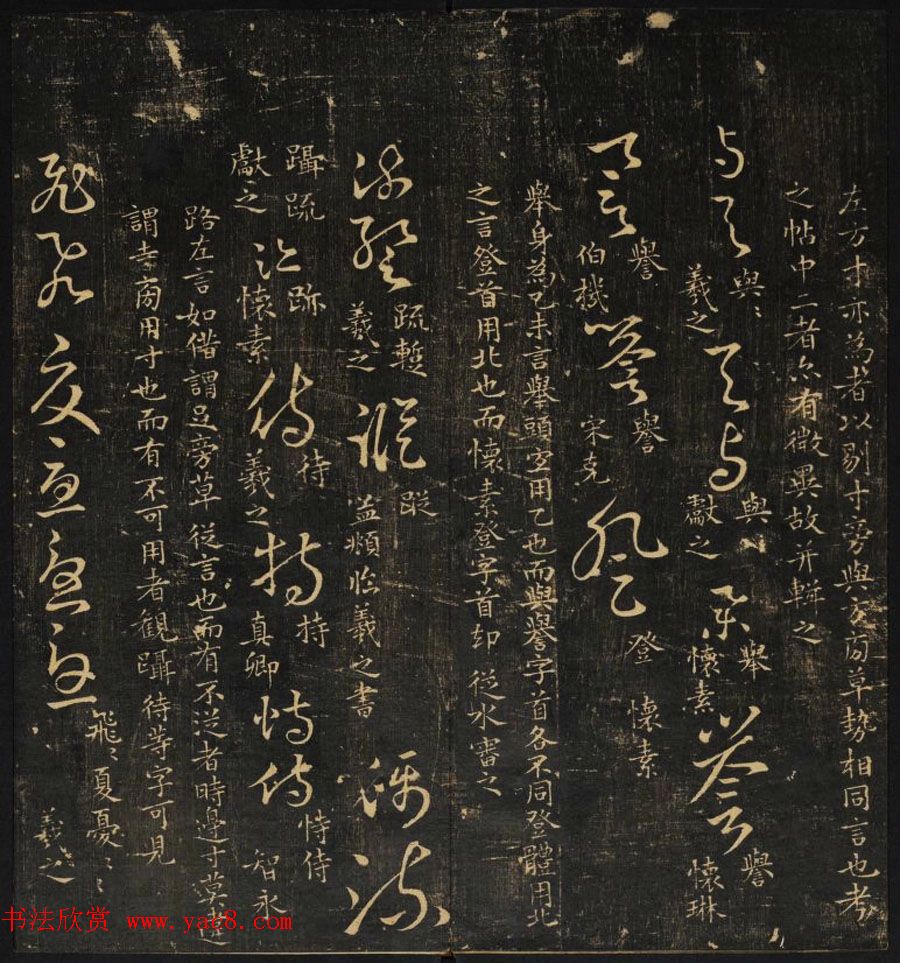 左方才亦為者以剔才旁與方商草勢相同言也考
之帖中二者亦有微異故并輯之
與與 與:羲之 與與 與:獻之 舉 舉懷素 譽 譽懷琳
譽 譽伯機 譽 譽宋克 登 登懷素
舉身為乙未言舉頭宜用乙也而與譽字首各不同登體用北
之言登首用北也而懷素登字首却從水書之
疏蹔 疏蹔羲之 蹤 蹤益頻臨羲之書 躡疏
躡疏獻之 跡 跡懷素 待 待羲之 持 持真卿 恃侍 恃侍智永
路左言如偕謂足旁草從言也而有不從者時邊寸莫
謂寺商用寸也而有不可用者觀躡待等字可見
飛飛夏憂憂憂 飛:夏憂:: 羲之
书法欣赏 www.yac8.com